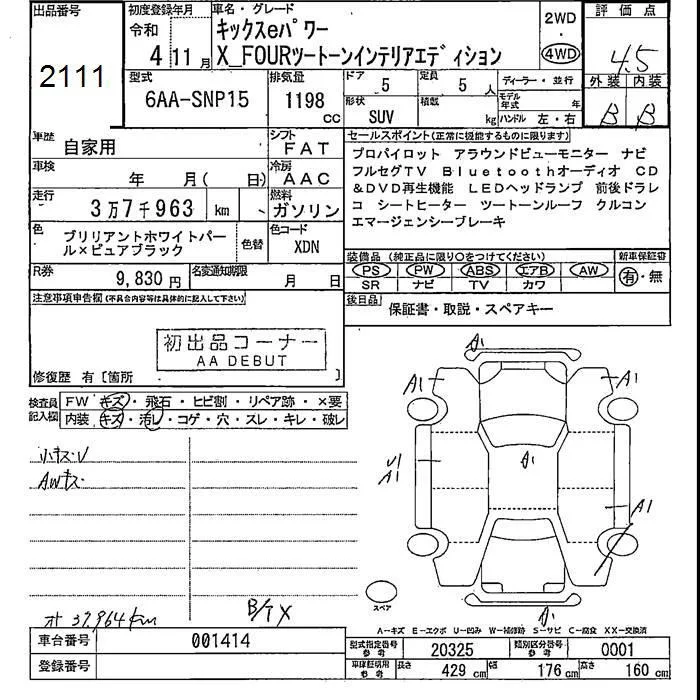 出品番号
2111
初度登録年月
令和
4 11月
車名・グレード
キックスeパワー
X_FOURツートーンインテリアエディション
2WD
・
4WD
評価点
4.5
外装 内装
B B
型式
6AA-SNP15
排気量
1198 cc
ドア
5
定員
5 人
形状
SUV
積載
kg
ディーラー・並行
モデル年式 年
ハンドル 左・右
車歴
自家用
シフト
FAT
車検
年 月( 日)
冷房
AAC
走行
3万7千963 km
燃料
ガソリン
色
ブリリアントホワイトパール×ピュアブラック
色替
色コード
XDN
セールスポイント(正常に機能するものに限ります)
プロパイロット アラウンドビューモニター ナビ
フルセグTV Bluetoothオーディオ CD
&DVD再生機能 LEDヘッドランプ 前後ドラレ
コ シートヒーター ツートーンルーフ クルコン
エマージェンシーブレーキ
R券
9,830 円
名変通知期限
月 日
装備品 (純正品に限り○をつけてください)
PS PW ABS エアB AW
SR ナビ TV カワ
新車保証書
有・無
後日品
保証書・取説・スペアキー
注意事項申告欄(不具合内容等は具体的に記入して下さい)
初出品コーナー
AA DEBUT
修復歴 有〔箇所 〕
検査員記入欄
FW キズ・飛石・ヒビ割・リペア跡・×要
内装 キズ・汚し・コゲ・穴・スレ・キレ・破レ
小キズ・U
AWキズ
オ 37,964km
B/T X
A1
A1
A1
A1
U1
A1
A1
A1
スペア
A-キズ E-エクボ U-凹み W-補修跡 S-サビ C-腐食 XX-交換済
車台番号
001414
登録番号
型式指定番号
参考
20325
類別区分番号
参考
0001
車庫証明用
参考
長さ
429 cm
幅
176 cm
高さ
160 cm